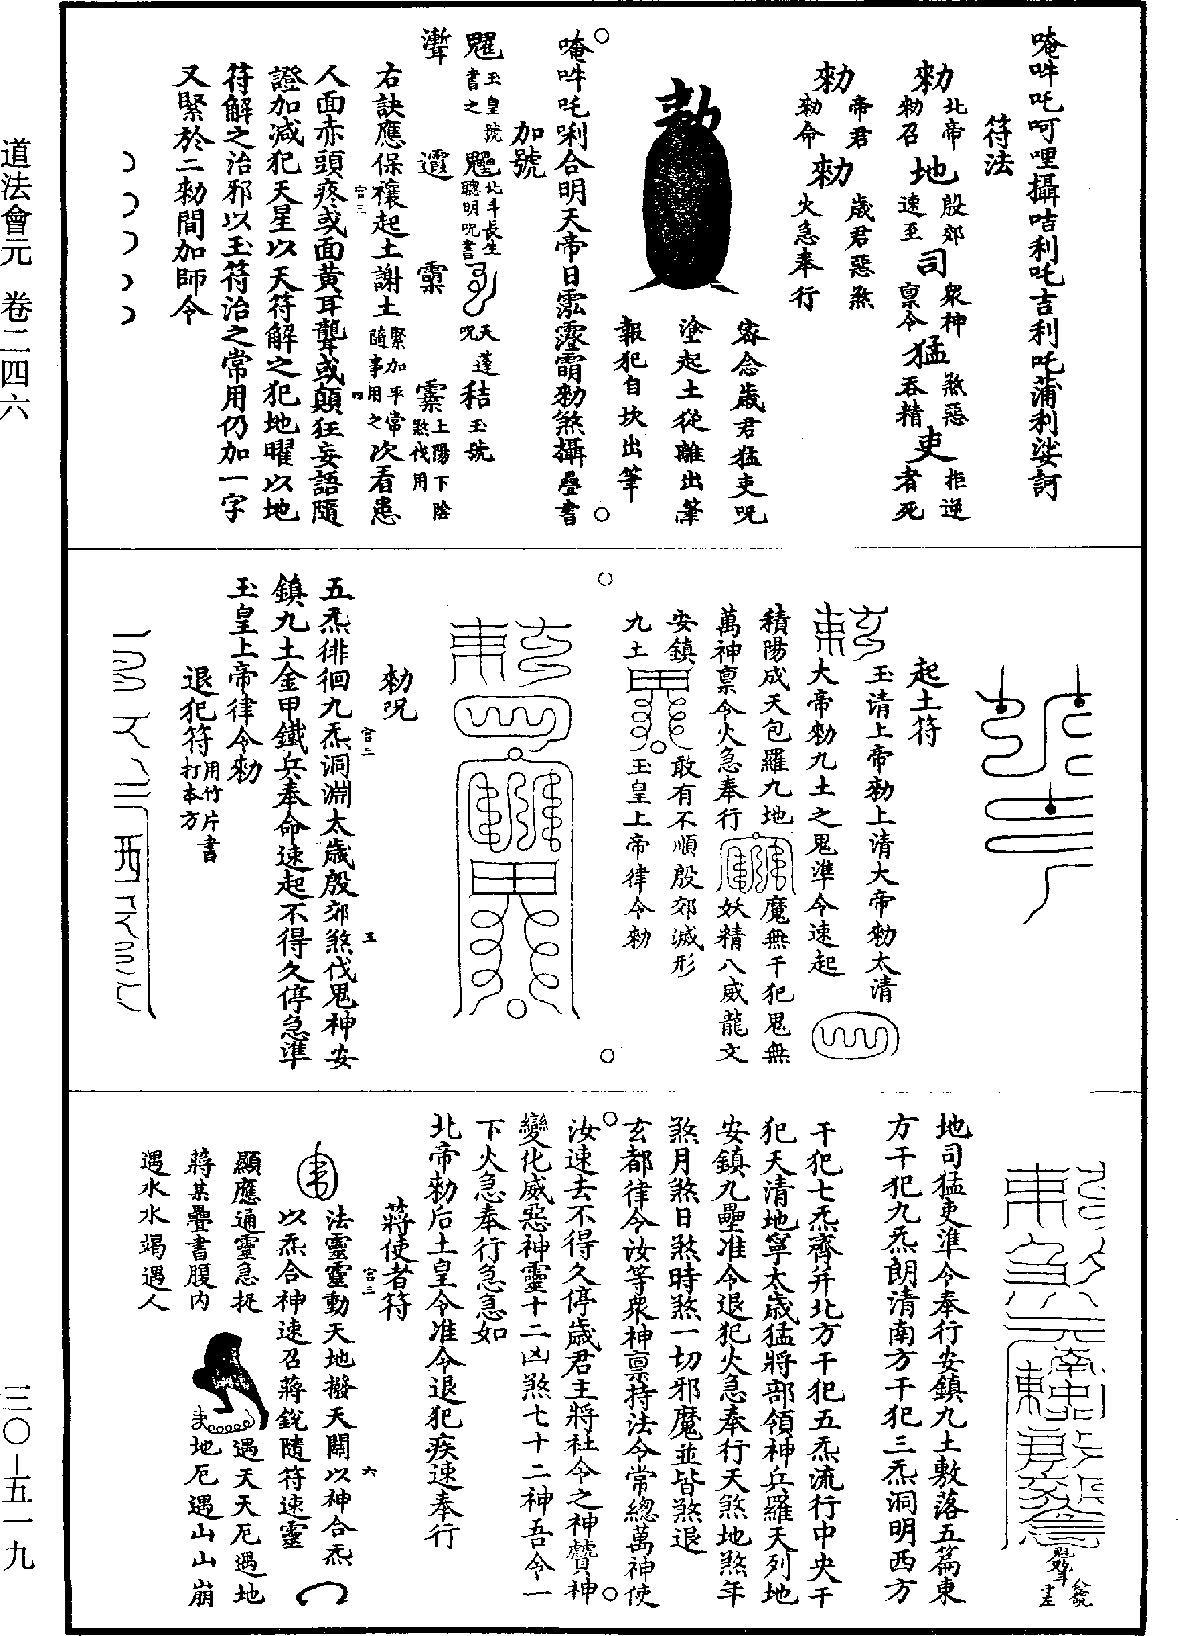 唵吽吒呵哩攝咭利吒吉利吒蒲利娑訶
符法
勑 北帝勑召 地 殷郊速至 司 衆神稟令 猛 煞惡吞精 吏 拒逆者死
勑 帝君勑命 勑 歲君惡煞火急奉行
密念歲君猛吏咒
塗起土從離出筆
報犯自坎出筆
勑
唵吽吒唎合明天帝日 霐 霊 霌 勑煞攝疊書
加號
玉皇號書之 北斗長生聰明咒書 天蓬咒 秸 玉號
上陽下陰煞伐用
右訣應保禳起土謝土 緊加平常隨事用之 次看患
人面赤頭疼或面黃耳聾或顛狂妄語隨
證加減犯天星以天符解之犯地曜以地
符解之治邪以玉符治之常用仍加一字
又緊於二勑間加師令
起土符
玉清上帝勑上清大帝勑太清
大帝勑九土之鬼準令速起
積陽成天包羅九地 魔無干犯鬼無
萬神稟令火急奉行 妖精八威龍文
安鎮 敢有不順殷郊滅形
九土 玉皇上帝律令勑
勑咒
五炁徘徊九炁洞淵太歲殷郊煞伐鬼神安
鎮九土金甲鐵兵奉命速起不得久停急準
玉皇上帝律令勑
退犯符 用竹片書打本方
地司猛吏準令奉行安鎮九土敷落五篇東
方干犯九炁朗清南方干犯三炁洞明西方
干犯七炁齊并北方干犯五炁流行中央干
犯天清地寧太歲猛將部領神兵羅天列地
安鎮九壘准令退犯火急奉行天煞地煞年
煞月煞日煞時煞一切邪魔並皆煞退
玄都律令汝等衆神稟持法令常總萬神使
汝速去不得久停歲君主將社令之神贊神
變化威惡神靈十二凶煞七十二神吾令一
下火急奉行急急如
北帝勑后土皇令准令退犯疾速奉行
蔣使者符
法靈靈動天地撥天關以神合炁
以炁合神速召蔣銳隨符速靈
顯應通靈急捉 遇天天厄遇地
蔣某疊書腹内 地厄遇山山崩
遇水水竭遇人
道法會元 卷二四六
三〇-五一九